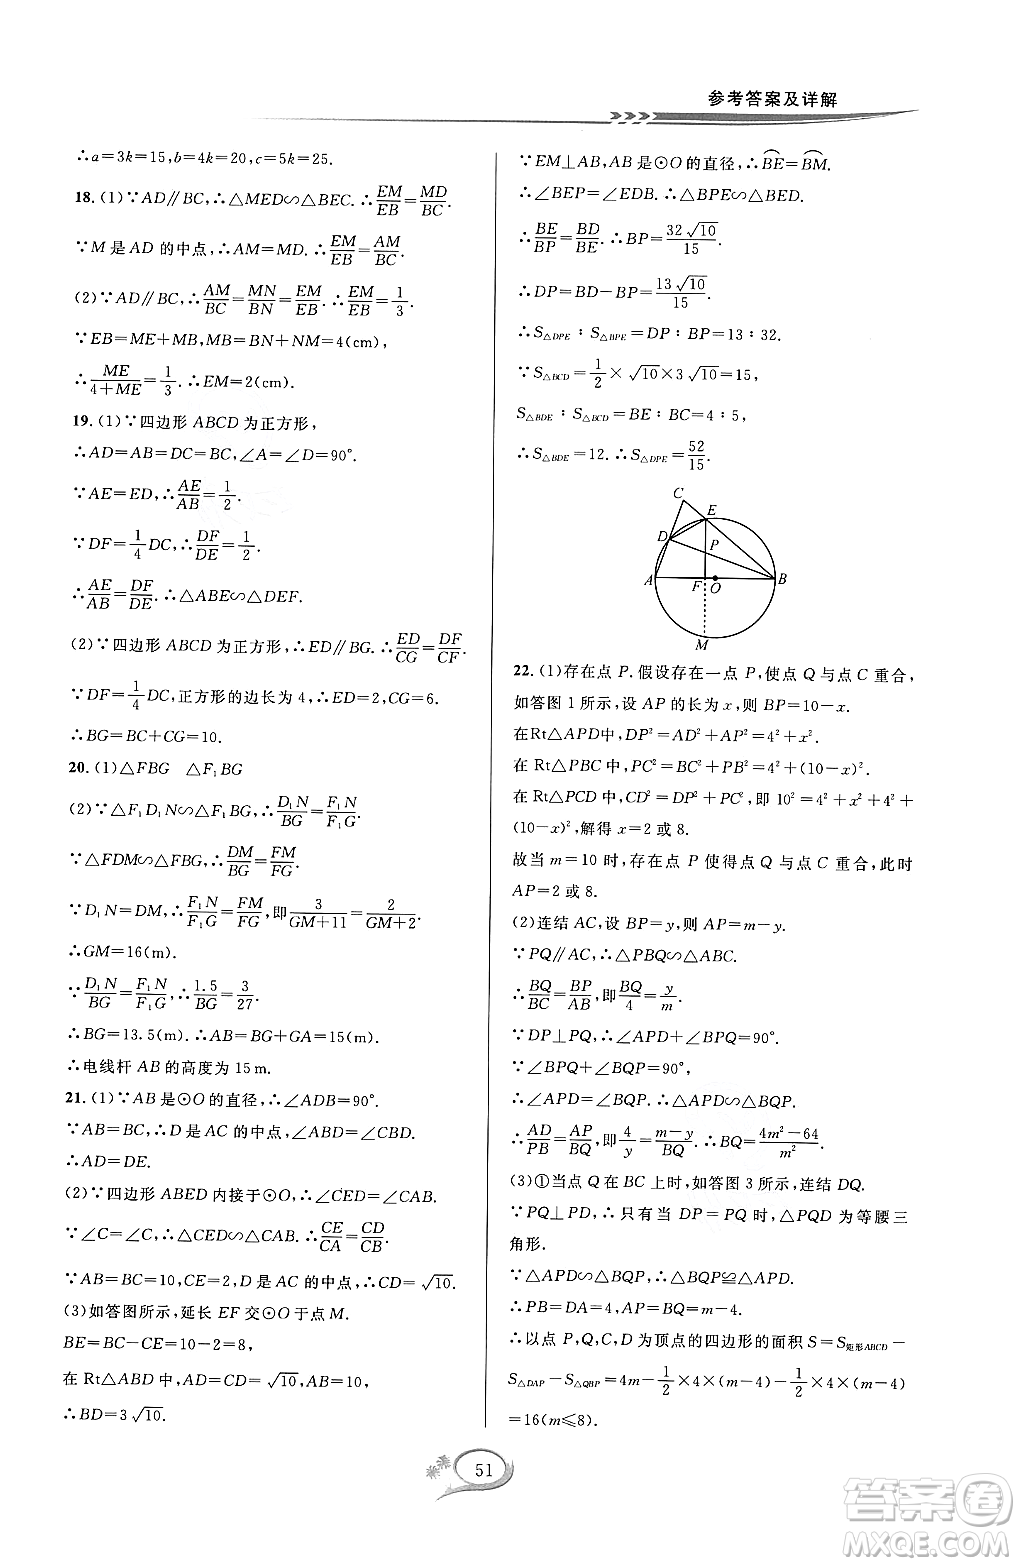 参考答案及详解
∴a=3k=15,b=4k=20,c=5k=25.
18. (1)∵AD∥BC,∴△MED∽△BEC.∴EM/EB=MD/BC.
∵M 是 AD 的中点,∴AM=MD.∴EM/EB=AM/BC.
(2)∵AD∥BC,∴AM/BC=MN/BN=EM/EB.∴EM/EB=1/3.
∵EB=ME+MB,MB=BN+MN=4(cm),
∴ME/(4+ME)=1/3.∴EM=2(cm).
19. (1)∵四边形 ABCD 为正方形,
∴AD=AB=DC=BC,∠A=∠D=90°.
∵AE=ED,∴AE/AB=1/2.
∵DF=1/4DC,∴DF/DE=1/2.
∴AE/AB=DF/DE.∴△ABE∽△DEF.
(2)∵四边形 ABCD 为正方形,∴ED∥BG.∴ED/CG=DF/CF.
∵DF=1/4DC,正方形的边长为 4,∴ED=2,CG=6.
∴BG=BC+CG=10.
20. (1)△FBG △F₁BG
(2)∵△F₁D₁N∽△F₁BG,∴D₁N/BG=F₁N/F₁G.
∵△FDM∽△FBG,∴DM/BG=FM/FG.
∵D₁N=DM,∴F₁N/F₁G=FM/FG,即3/(GM+11)=2/(GM+2).
∴GM=16(m).
∵D₁N/BG=F₁N/F₁G,∴1.5/BG=3/27.
∴BG=13.5(m).∴AB=BG+GA=15(m).
∴电线杆 AB 的高度为 15 m.
21. (1)∵AB 是⊙O 的直径,∴∠ADB=90°.
∵AB=BC,∴D 是 AC 的中点,∠ABD=∠CBD.
∴AD=DE.
(2)∵四边形 ABED 内接于⊙O,∴∠CED=∠CAB.
∵∠C=∠C,∴△CED∽△CAB.∴CE/CA=CD/CB.
∵AB=BC=10,CE=2,D 是 AC 的中点,∴CD=√10.
(3)如答图所示,延长 EF 交⊙O 于点 M.
BE=BC−CE=10−2=8,
在 Rt△ABD 中,AD=CD=√10,AB=10,
∴BD=3√10.
∵EM⊥AB,AB 是⊙O 的直径,∴BE⌒=BM⌒.
∴∠BEP=∠EDB.∴△BPE∽△BED.
∴BE/BP=BD/BE.∴BP=32√10/15.
∴DP=BD−BP=13√10/15.
∴S△DPE∶S△BPE=DP∶BP=13∶32.
∵S△BCD=1/2×√10×3√10=15,
S△BDE∶S△BCD=BE∶BC=4∶5,
∴S△BDE=12.∴S△DPE=52/15.
C
E
D
P
A
F O
B
M
22. (1)存在点 P.假设存在一点 P,使点 Q 与点 C 重合,
如答图 1 所示,设 AP 的长为 x,则 BP=10−x.
在Rt△APD 中,DP²=AD²+AP²=4²+x².
在 Rt△PBC 中,PC²=BC²+PB²=4²+(10−x)².
在 Rt△PCD 中,CD²=DP²+PC²,即 10²=4²+x²+4²+
(10−x)²,解得 x=2 或 8.
故当 m=10 时,存在点 P 使得点 Q 与点 C 重合,此时
AP=2 或 8.
(2)连结 AC,设 BP=y,则 AP=m−y.
∵PQ∥AC,∴△PBQ∽△ABC.
∴BQ/BC=BP/AB,即BQ/4=y/m.
∵DP⊥PQ,∴∠APD+∠BPQ=90°.
∵∠BPQ+∠PQB=90°,
∴∠APD=∠PQB.∴△APD∽△BQP.
∴AD/PB=AP/BQ,即4/y=(m−y)/BQ.∴BQ=(4m²−64)/m².
(3)①当点 Q 在 BC 上时,如答图 3 所示,连结 DQ.
∵PQ⊥PD,∴只有当 DP=PQ 时,△PQD 为等腰三
角形.
∵△APD∽△BQP,∴△BQP≌△APD.
∴PB=DA=4,AP=BQ=m−4.
∴以点 P,Q,C,D 为顶点的四边形的面积 S=S矩形ABCD−
S△DAP−S△QBP=4m−1/2×4×(m−4)−1/2×4×(m−4)
=16(m⩽8).
51
答案圈
MXQE.COM